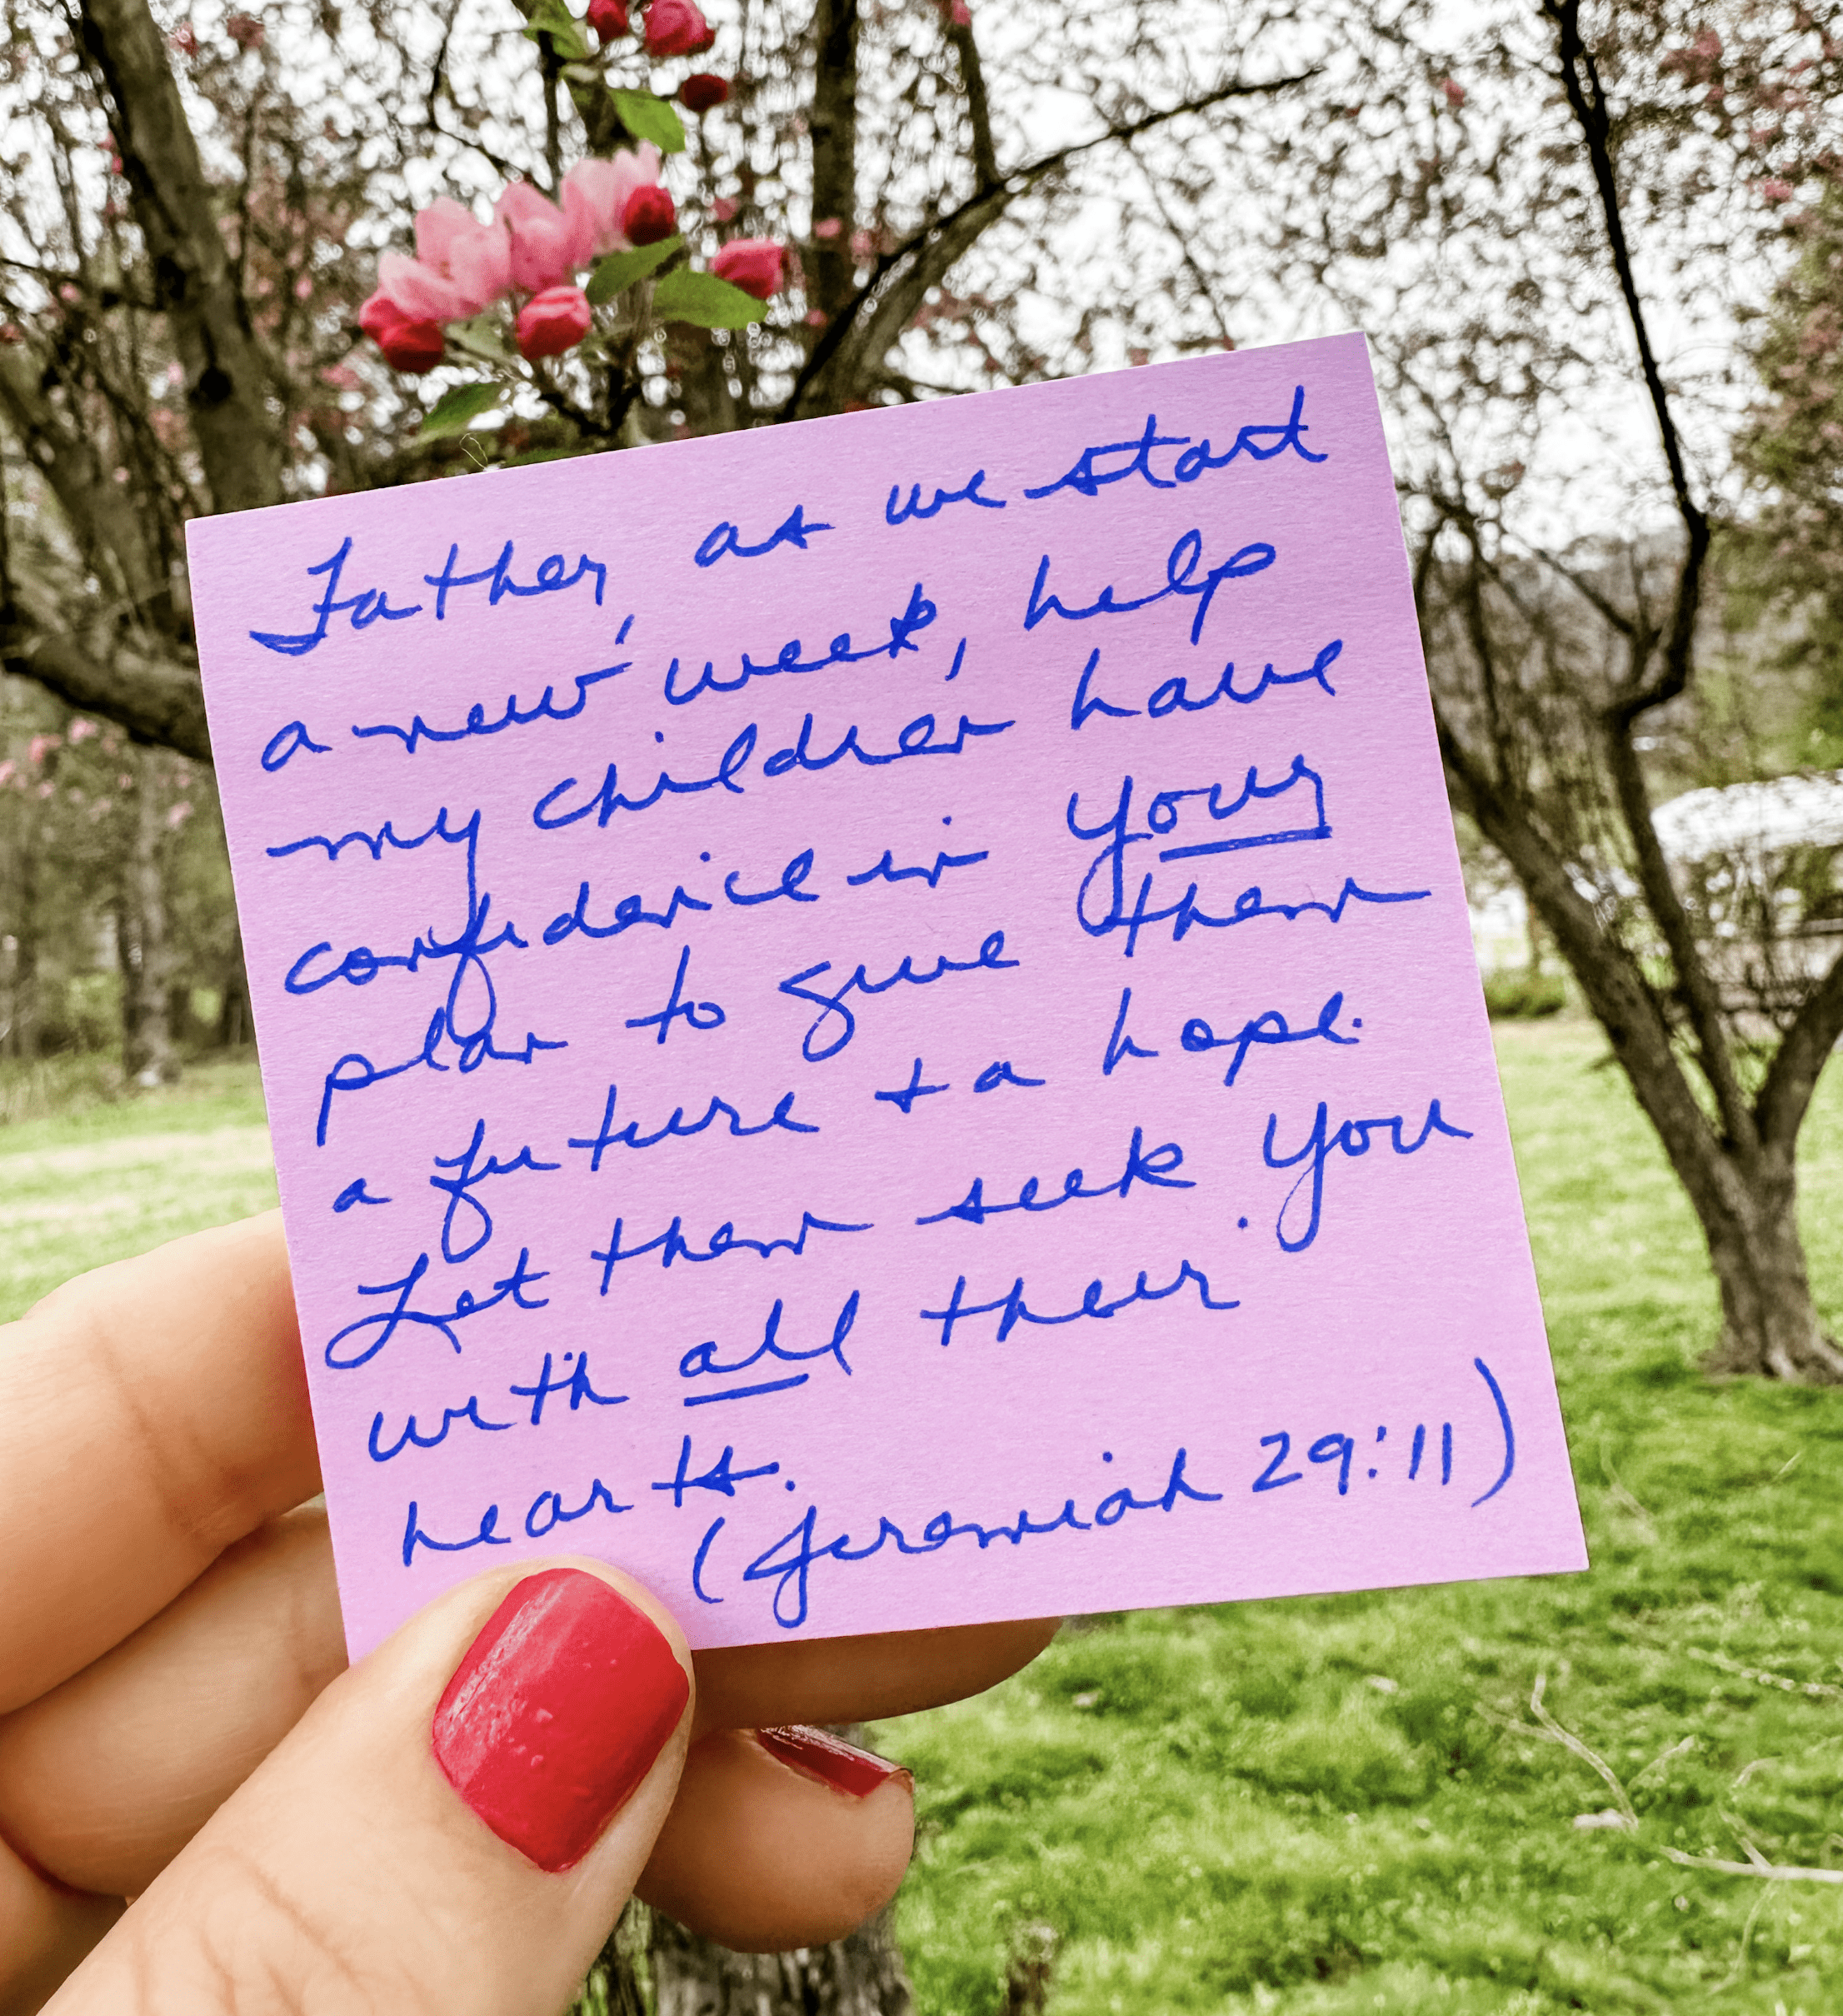 Father, as we start
a new week, help
my children have
confidence in Your
plan to give them
a future + a hope.
Let them seek You
with all their
hearts.
(Jeremiah 29:11)